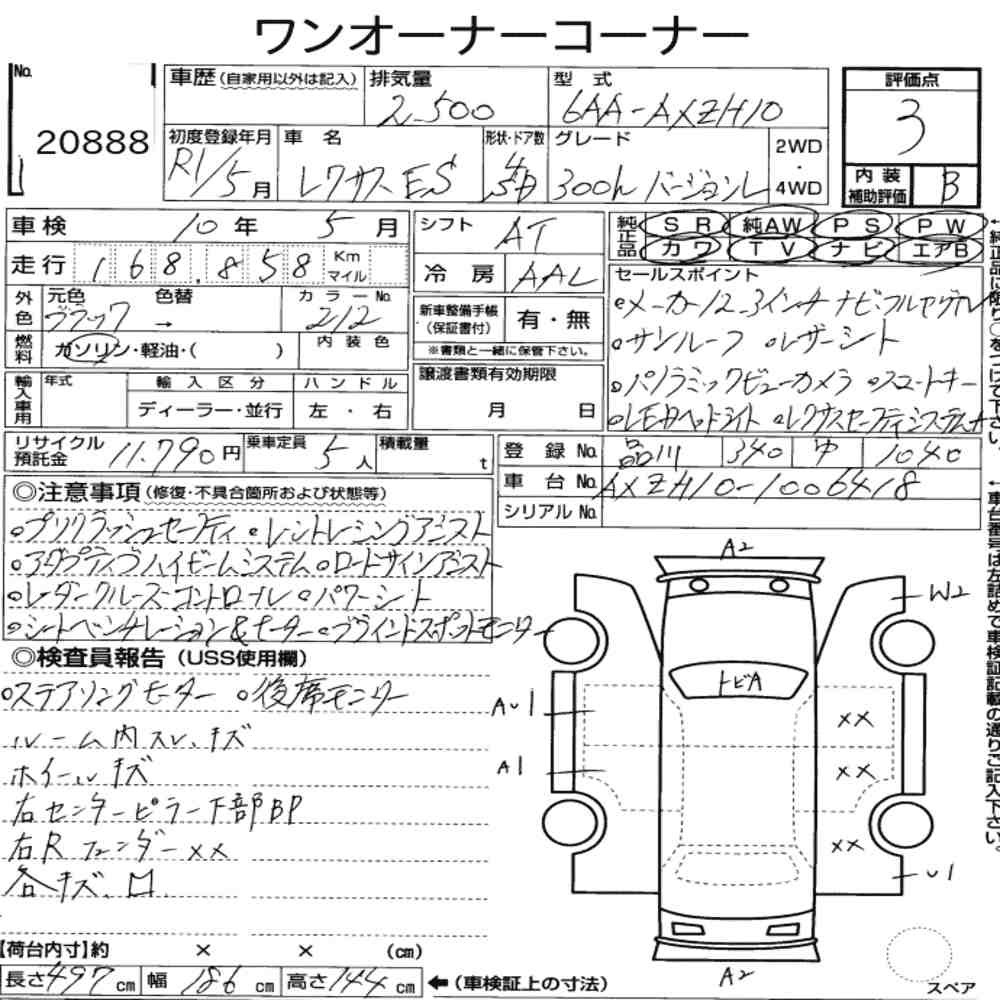 ワンオーナーコーナー
No. 20888
車歴(自家用以外は記入) 排気量 2,500 型式 6AA-AXZH10
評価点 3
初度登録年月 R1/5月 車名 レクサス ES 形状・ドア数 4 SD グレード 300h バージョンL 2WD・4WD
内装補助評価 B
車検 10年 5月 シフト AT
純正品 SR 純AW PS PW
カワ TV ナビ エアB
走行 168,858 Km マイル 冷房 AAC
外色 元色 ブラック → 色替 カラーNo. 212
新車整備手帳(保証書付) 有・無
※書類と一緒に保管下さい。
燃料 ガソリン・軽油・( ) 内装色
セールスポイント
•メーカー12.3インチ ナビ・フルセグTV
•サンルーフ •レザーシート
•パノラミックビューカメラ •スマートキー
•LEDヘッドライト •レクサスセーフティシステム+
輸入車用 年式 輸入区分 ハンドル
ディーラー・並行 左・右
譲渡書類有効期限 月 日
リサイクル預託金 11,790円 乗車定員 5人 積載量 t
登録No. 品川 340 ゆ 1040
車台No. AXZH10-1006418
シリアルNo.
◎注意事項(修復・不具合箇所および状態等)
•プリクラッシュセーフティ •レーントレーシングアシスト
•アダプティブハイビームシステム •ロードサインアシスト
•レーダークルーズコントロール •パワーシート
•シートベンチレーション&ヒーター •ブラインドスポットモニター
◎検査員報告(USS使用欄)
•ステアリングヒーター •後席モニター
ルーム内スレ、キズ
ホイールキズ
右センターピラー下部BP
右Rフェンダー××
各キズ、凹
【荷台内寸】約 × × (cm)
長さ 497cm 幅 186cm 高さ 144cm ←(車検証上の寸法)
A2
W2
トビA
AU1
A1
××
××
××
U1
A2
スペア
←純正品に限り○をつけて下さい。
←車台番号は左詰めで車検証記載の通りご記入下さい。